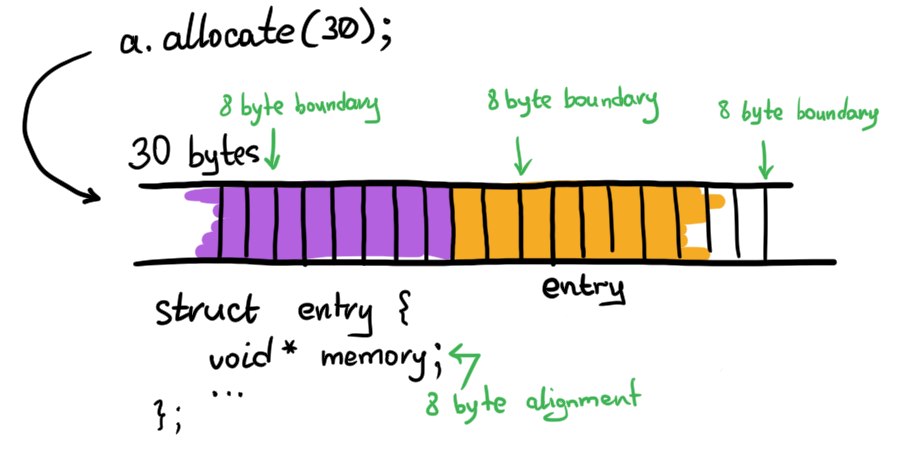 a.allocate(30);
8 byte boundary
8 byte boundary
8 byte boundary
30 bytes
entry
struct entry {
void* memory;
...
8 byte alignment
};